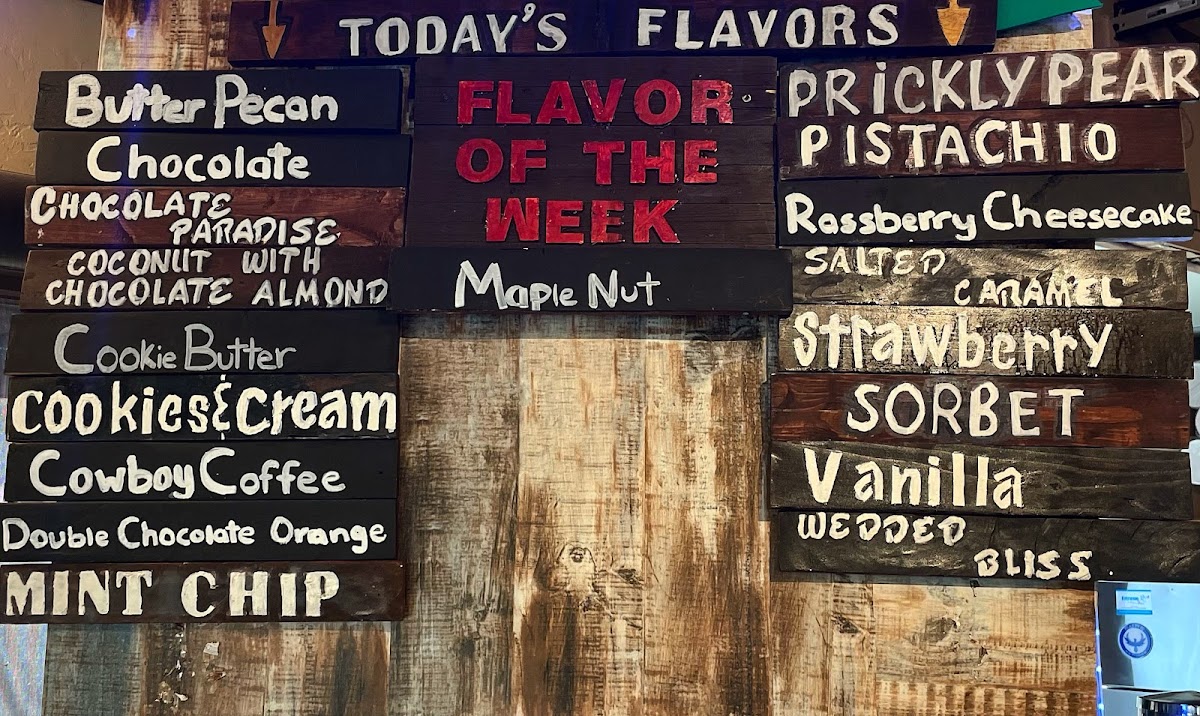 TODAY'S FLAVORS
Butter Pecan
Chocolate
CHOCOLATE
PARADISE
COCONUT WITH
CHOCOLATE ALMOND
Cookie Butter
Cookies & Cream
Cowboy Coffee
Double Chocolate Orange
MINT CHIP
FLAVOR
OF THE
WEEK
Maple Nut
PRiCKLY PEAR
PISTACHIO
Rassberry Cheesecake
SALTED
CARAMEL
Strawberry
SORBET
Vanilla
WEDDED
BLISS